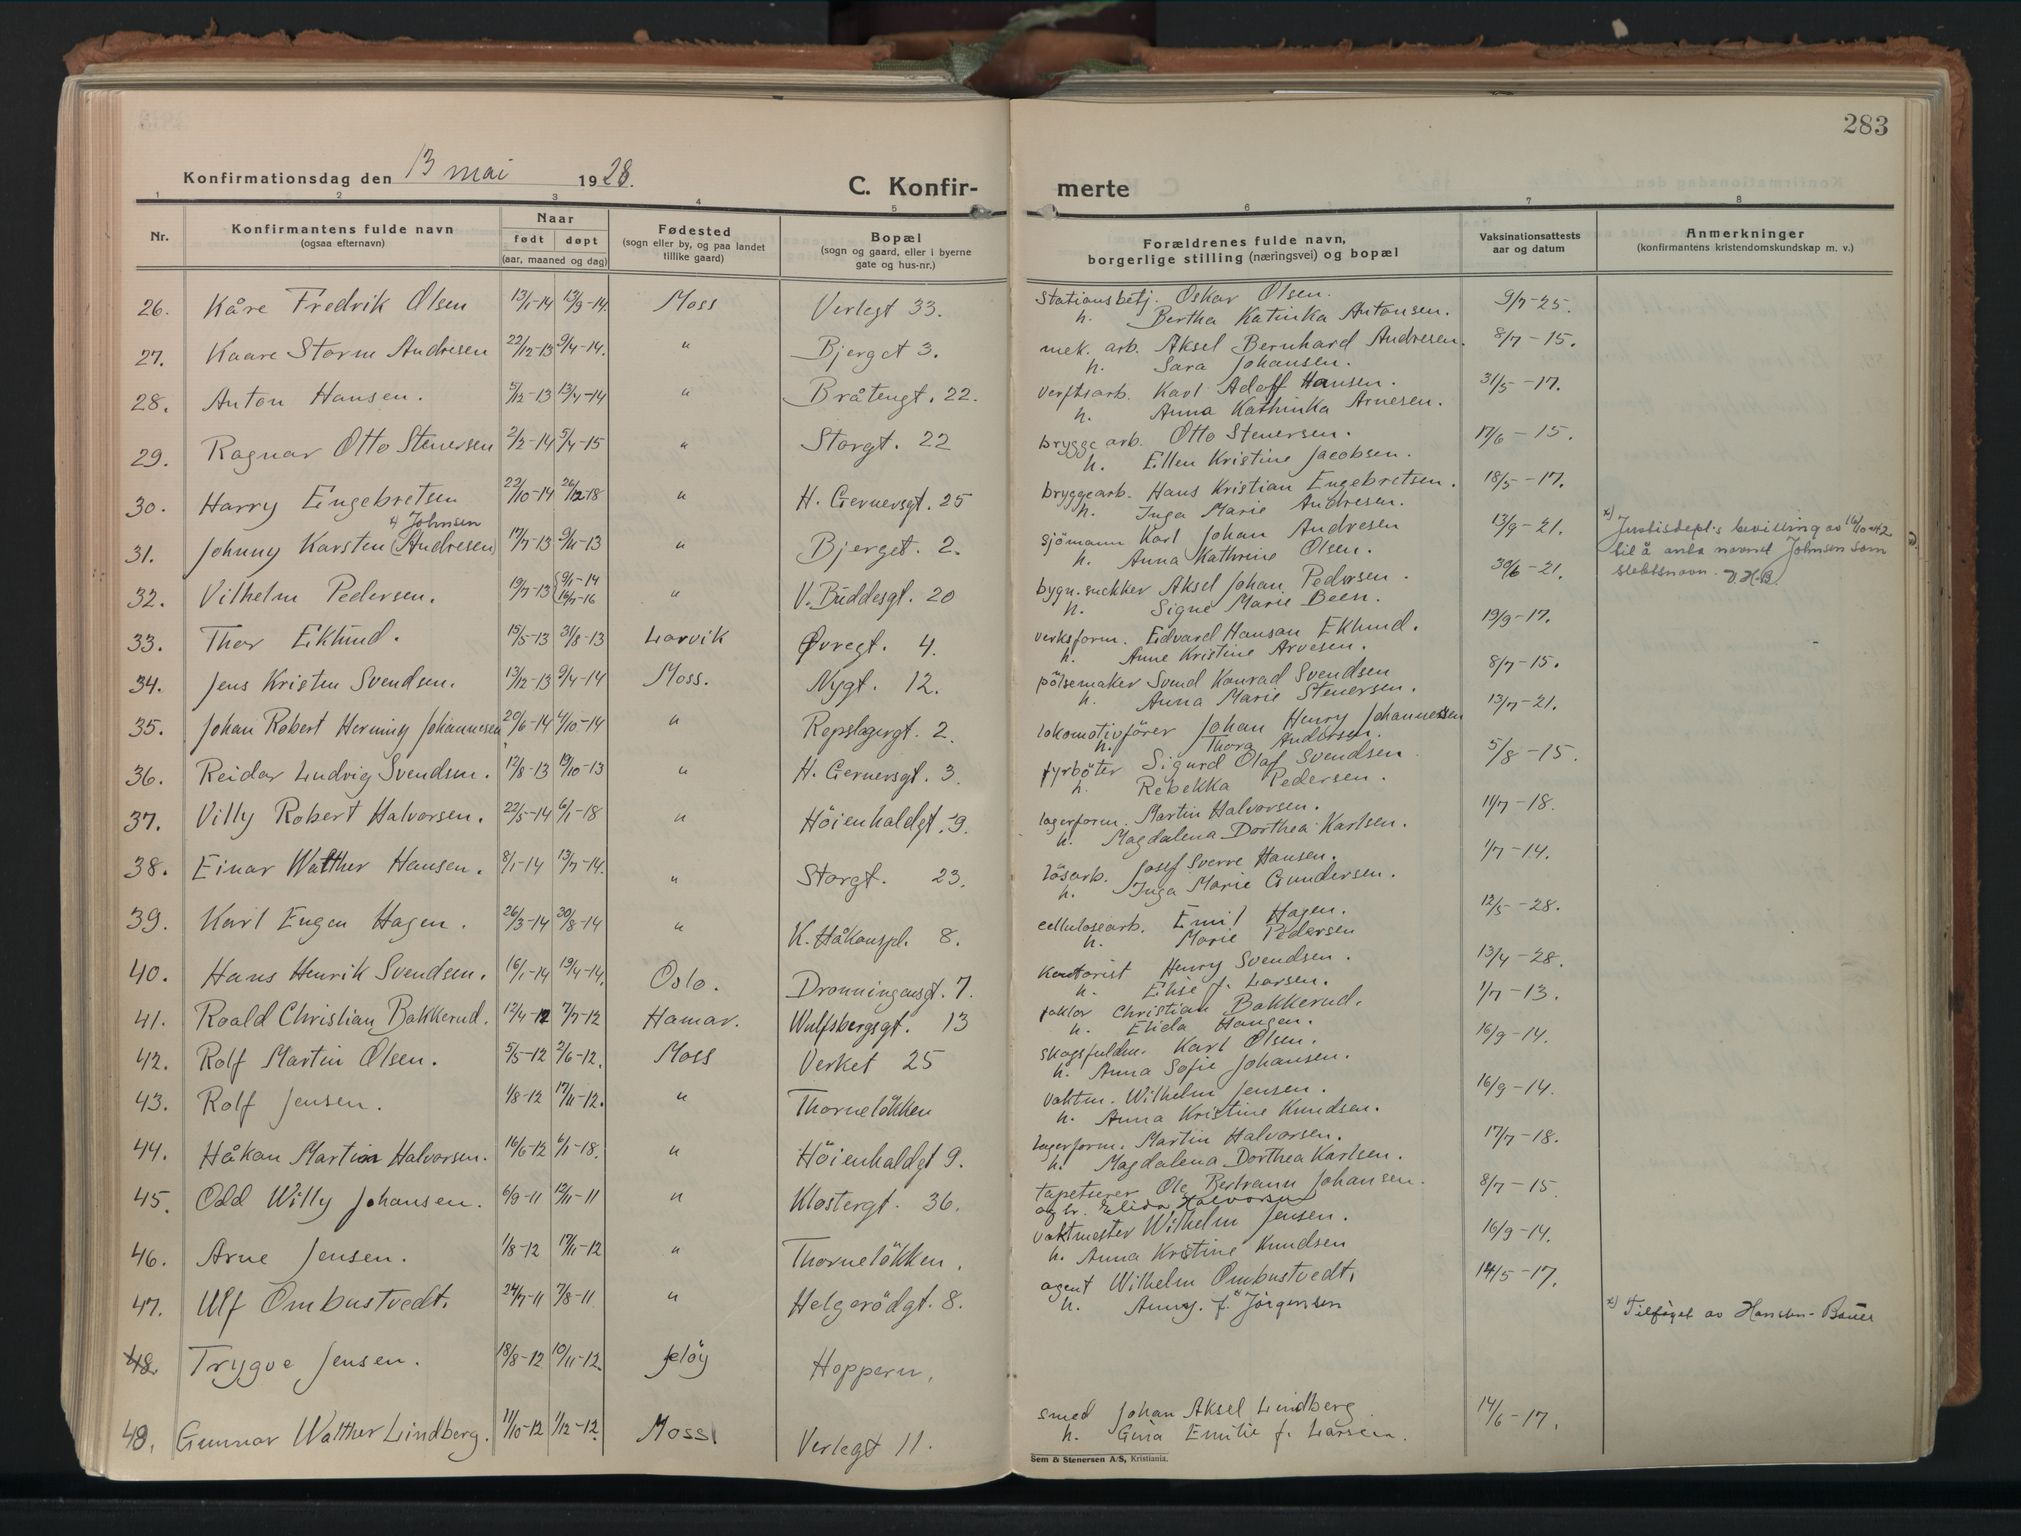 283
Konfirmationsdag den 13 mai 1928.
C. Konfir- merte
1 2 3 4 5 6 7 8
Nr. Konfirmantens fulde navn (ogsaa efternavn) Naar født døpt (aar, maaned og dag) Fødested (sogn eller by, og paa landet tillike gaard) Bopæl (sogn og gaard, eller i byerne gate og hus-nr.) Forældrenes fulde navn, borgerlige stilling (næringsvei) og bopæl Vaksinationsattests aar og datum Anmerkninger (konfirmantens kristendomskundskap m. v.)
26. Kåre Fredrik Olsen 13/1-14 13/9-14. Moss Verlegt 33. Stationsbetj. Oskar Olsen. 9/7-25.
h. Bertha Katinka Antonsen.
27. Kaare Storm Andresen 22/12-13 9/4-14. " Bjerget 3. mek. arb. Aksel Bernhard Andresen. 8/7-15.
h. Sara Johansen.
28. Anton Hansen. 5/12-13 13/4-14 " Bråtengt. 22. verftsarb. Karl Adolf Hansen. 31/5-17.
h. Anna Kathinka Arnesen.
29. Ragnar Otto Stenersen 2/2-14 5/4-15 " Storgt. 22 bryggearb. Otto Stenersen. 17/6-15.
h. Ellen Kristine Jacobsen.
30. Harry Engebretsen 22/10-14 26/12-18 " H. Gernersgt. 25 bryggearb. Hans Kristian Engebretsen. 18/5-17.
h. Inga Marie Andresen.
x) Johnsen
31. Johnny Karsten (Andresen) 17/7-13 9/11-13 " Bjerget. 2. sjömann Karl Johan Andresen 13/9-21. x) Justisdept.s bevilling av 16/10 1942
h. Anna Kathrine Olsen. til å anta navnet Johnsen som
slektsnavn. H.B.
32. Vilhelm Pedersen. 19/7-13 {9/1-14 16/7-16 " V. Buddesgt. 20 bygn.snekker Aksel Johan Pedersen. 30/6-21.
h. Signe Marie Been.
33. Thor Eklund. 15/5-13 31/8-13 Larvik Øvregt. 4. verksform. Edvard Hansen Eklund. 19/9-17.
h. Anne Kristine Arvesen.
34. Jens Kristen Svendsen. 13/12-13 9/4-14 Moss. Nygt. 12. pölsemaker Svend Konrad Svendsen 8/7-15.
h. Anna Marie Stenersen.
35. Johan Robert Herming Johannesen 20/6-14 4/10-14 " Repslagergt. 2. lokomotivförer Johan Henry Johannesen 13/7-21.
h. Thora Andersen.
36. Reidar Ludvig Svendsen. 12/8-13 19/10-13 " H. Gernersgt. 3. fyrböter Sigurd Olaf Svendsen 5/8-15.
h. Rebekka Pedersen.
37. Villy Robert Halvorsen. 22/5-14 6/1-18 " Höienhaldgt. 9. lagerform. Martin Halvorsen. 17/7-18.
h. Magdalena Dorthea Karlsen.
38. Einar Walther Hansen. 8/1-14 13/7-14. " Storgt. 23. lösarb. Josef Sverre Hansen. 1/7-14.
h. Inga Marie Gundersen.
39. Karl Eugen Hagen. 26/3-14 30/8-14 " K. Håkonspl. 8. cellulosearb. Emil Hagen. 12/5-28.
h. Marie Pedersen
40. Hans Henrik Svendsen. 16/1-14 19/4-14. Oslo. Dronningensgt. 7. Kontorist Henry Svendsen. 13/4-28.
h. Elise f. Larsen.
41. Roald Christian Bakkerud. 12/4-12 7/7-12 Hamar. Wulfsbergsgt. 13 faktor Christian Bakkerud. 1/7-13.
h. Elida Hansen.
42. Rolf Martin Olsen. 5/5-12 2/6-12. Moss Verket 25 skogsfuldm. Karl Olsen. 16/9-14.
h. Anna Sofie Johansen.
43. Rolf Jensen. 1/8-12 17/11-12. " Thorneløkken vaktm. Wilhelm Jensen. 16/9-14.
h. Anna Kristine Knudsen.
44. Håkon Martin Halvorsen. 16/6-12 6/1-18. " Höienhaldgt 9. lagerform. Martin Halvorsen. 17/7-18.
h. Magdalena Dorthea Karlsen.
45. Odd Willy Johansen. 6/9-11 12/11-11 " Klostergt. 36. tapetserer Ole Bertrann Johansen. 8/7-15
og h. Elida Halvorsen
46. Arne Jensen. 1/8-12 17/11-12 " Thornelökken. vaktmester Wilhelm Jensen. 16/9-14.
h. Anna Kristine Knudsen
47. Ulf Ombustvedt. 24/7-11 7/8-11 " Helgerödgt. 8. agent Wilhelm Ombustvedt. 14/5-17.
h. Anny f. x) Jörgensen x) Tilføyet av Hansen-Bauer
48. Trygve Jensen. 18/8-12 10/11-12. Jelöy Hoppern.
49. Gunnar Walther Lindberg. 11/10-12 1/12-12. Moss Verlegt 11. smed Johan Aksel Lindberg 14/6-17.
h. Gina Emilie f. Larsen.
Sem & Stenersen A/S, Kristiania.